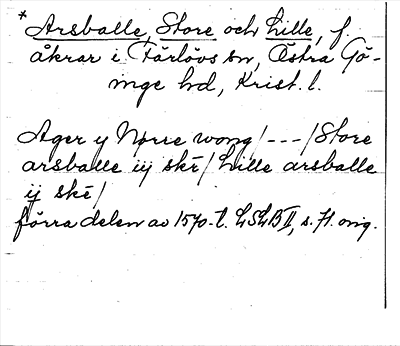 *Arsballe, Store och Lille, f.
åkrar i Färlövs sn, Östra Gö-
inge hd, Krist. l.
Ager y Nørre wong/---/Store
arsballe iij skē/ Lille arsballe
ij skē/
förra delen av 1570-t. LSLB II, s. 71. orig.